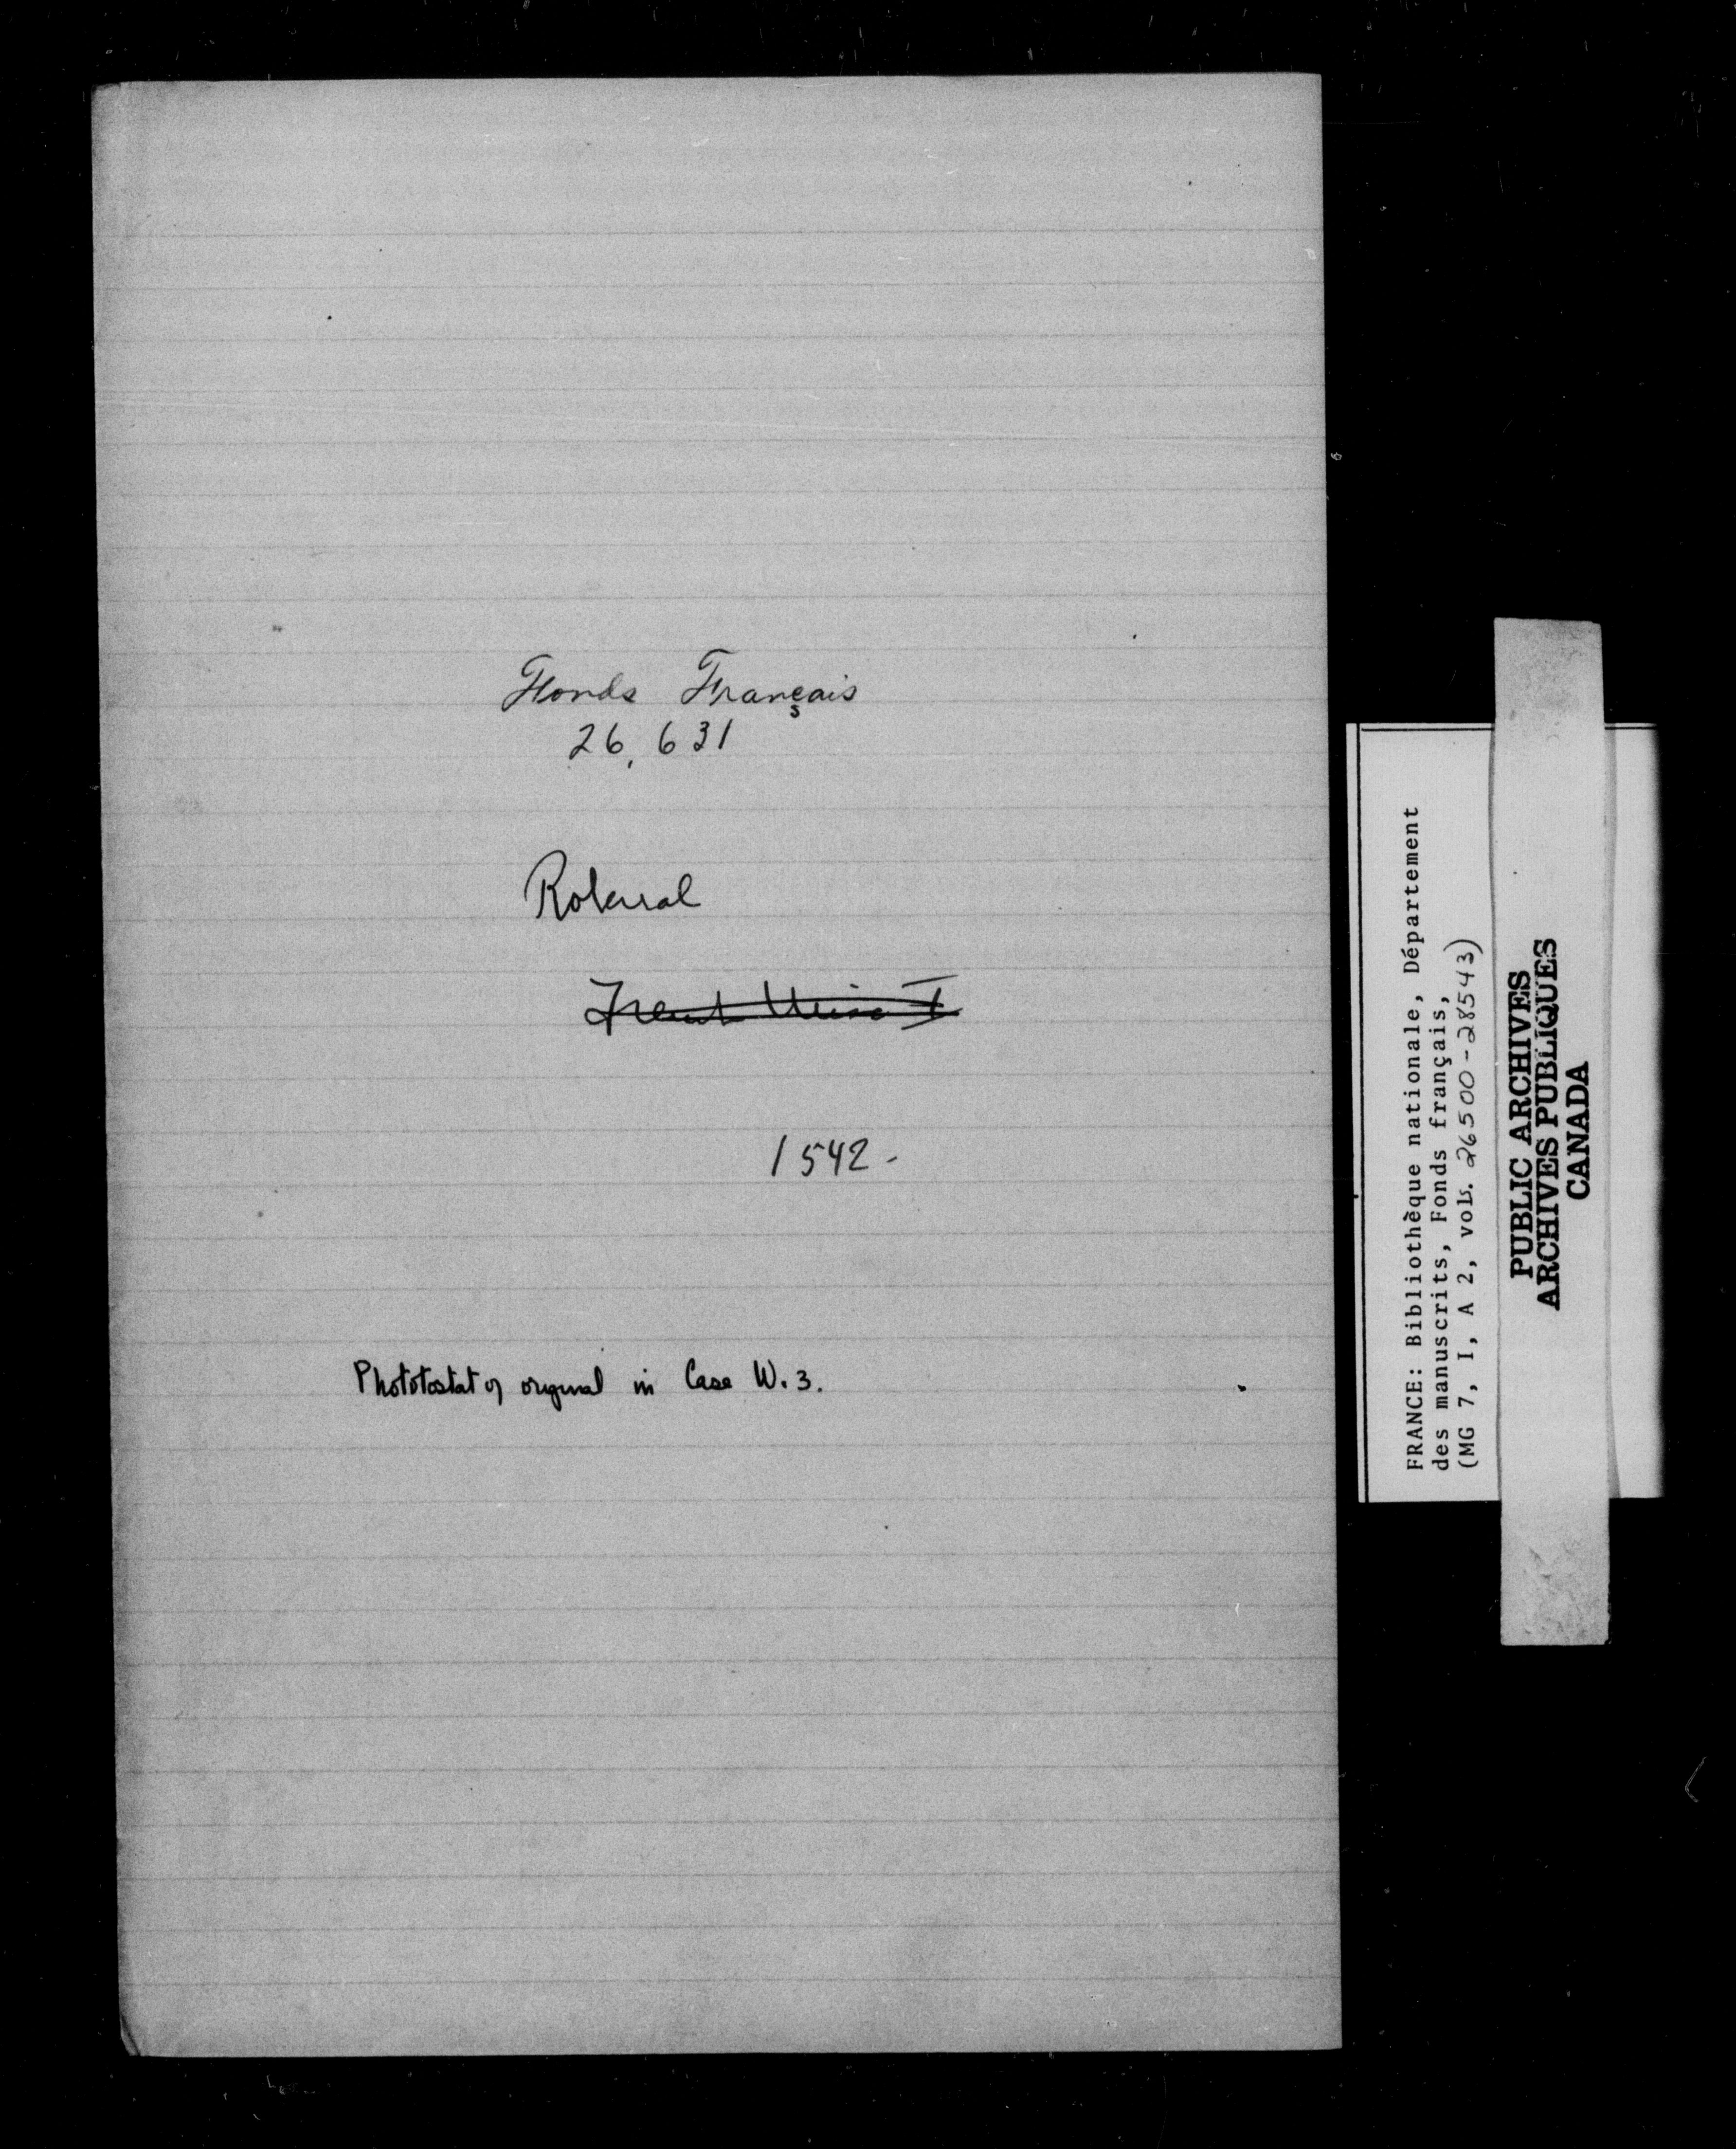 Fonds Français
26,631
Roberval
1542 -
Phototostat of original in Case W. 3.
FRANCE: Bibliothèque nationale, Département
des manuscrits, Fonds français,
(MG 7, I, A 2, vols. 26500-28543)
PUBLIC ARCHIVES
ARCHIVES PUBLIQUES
CANADA